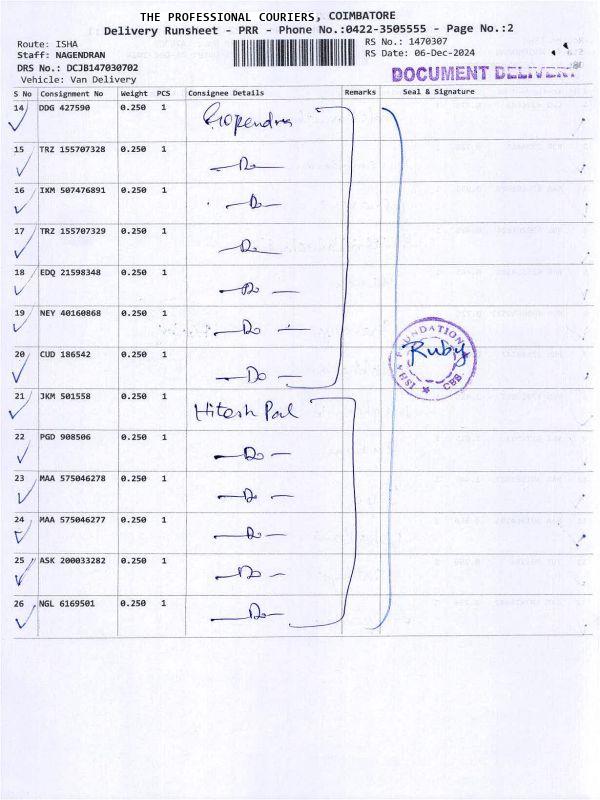 THE PROFESSIONAL COURIERS, COIMBATORE
Delivery Runsheet - PRR - Phone No.:0422-3505555 - Page No.:2
Route: ISHA
Staff: NAGENDRAN
DRS No.: DCJB147030702
Vehicle: Van Delivery
RS No.: 1470307
RS Date: 06-Dec-2024
DOCUMENT DELIVERY
S No Consignment No Weight PCS Consignee Details Remarks Seal & Signature
14 DDG 427590 0.250 1 Gopendra
15 TRZ 155707328 0.250 1 —Do—
16 IXM 507476891 0.250 1 —Do—
17 TRZ 155707329 0.250 1 —Do—
18 EDQ 21598348 0.250 1 —Do—
19 NEY 40160868 0.250 1 —Do—
20 CUD 186542 0.250 1 —Do—
ISHA FOUNDATION
Ruby
CBB.
21 JKM 501558 0.250 1 Hitesh Pal
22 PGD 908506 0.250 1 —Do—
23 MAA 575046278 0.250 1 —Do—
24 MAA 575046277 0.250 1 —Do—
25 ASK 200033282 0.250 1 —Do—
26 NGL 6169501 0.250 1 —Do—